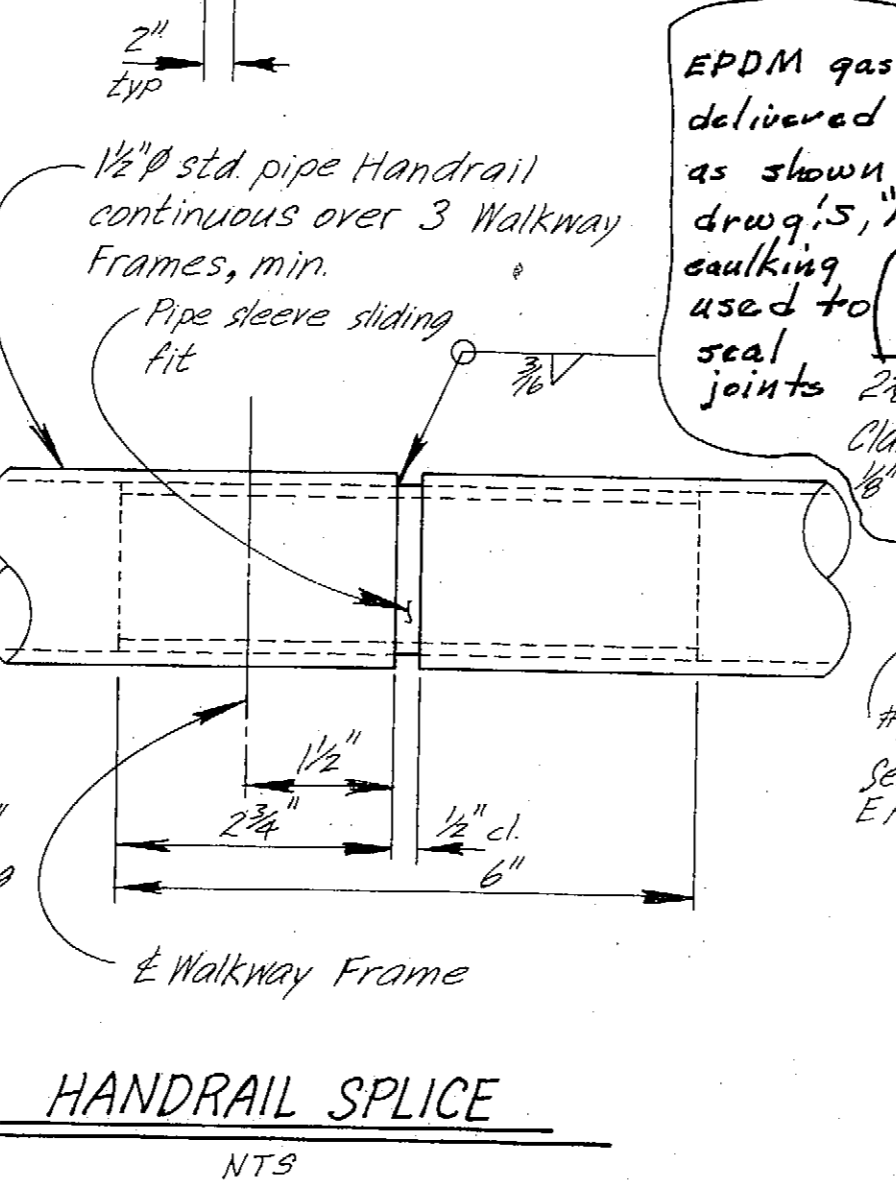 2"
typ
1½"Ø std. pipe Handrail
continuous over 3 Walkway
Frames, min.
Pipe sleeve sliding
fit
3/16
EPDM gas
delivered
as shown
drwg!s,"
caulking
used to
seal
joints
Cla
⅛"
1½"
2¾"
½" cl.
6"
#
Se
℄ Walkway Frame
HANDRAIL SPLICE
NTS